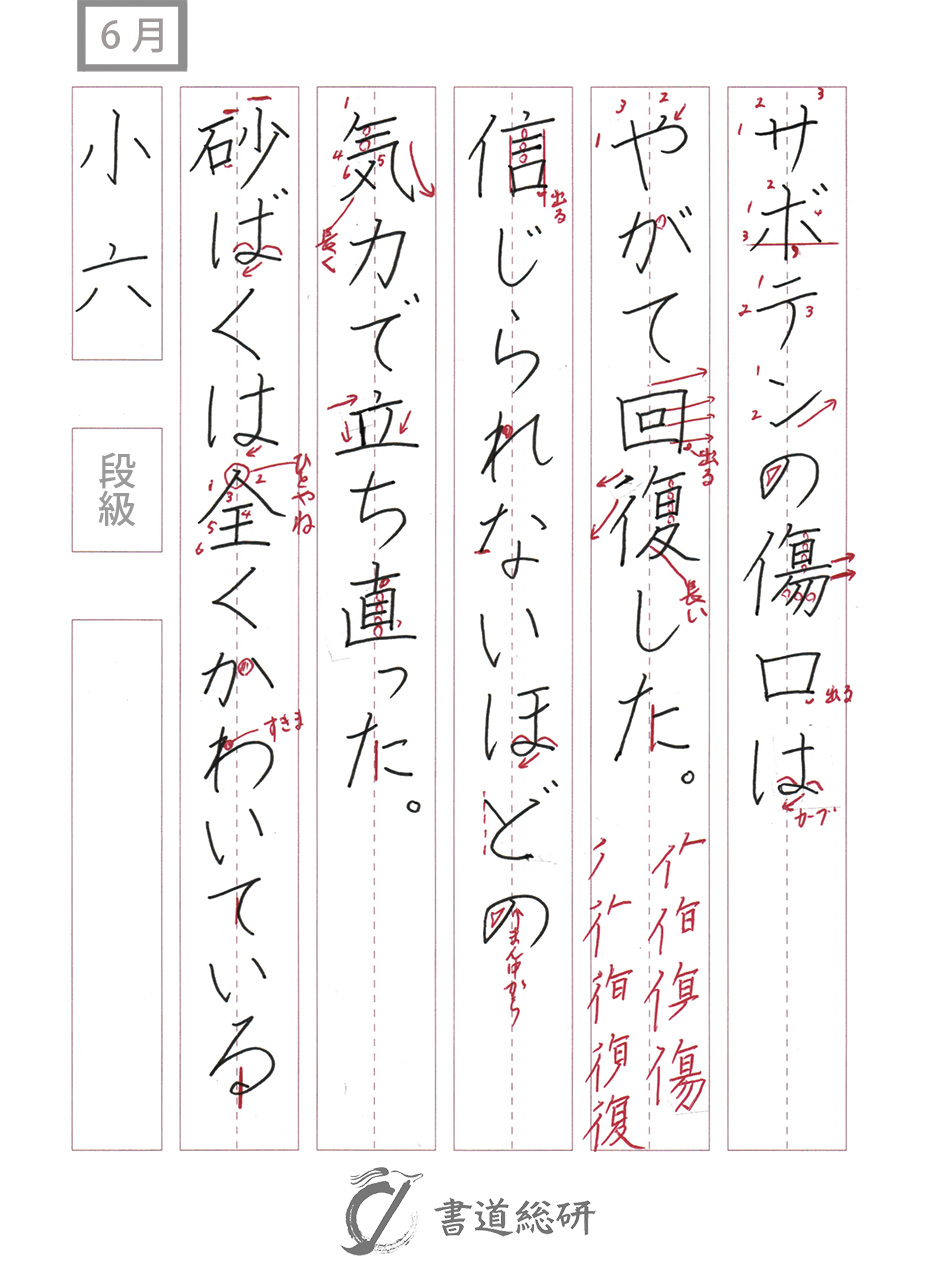 6月
サボテンの傷口は
出る
カーブ
やがて回復した。
出る
長い
信じられないほどの
出る
まん中から
気力で立ち直った。
長く
砂ばくは全くかわいている
ひとやね
すきま
小六
段級
書道総研